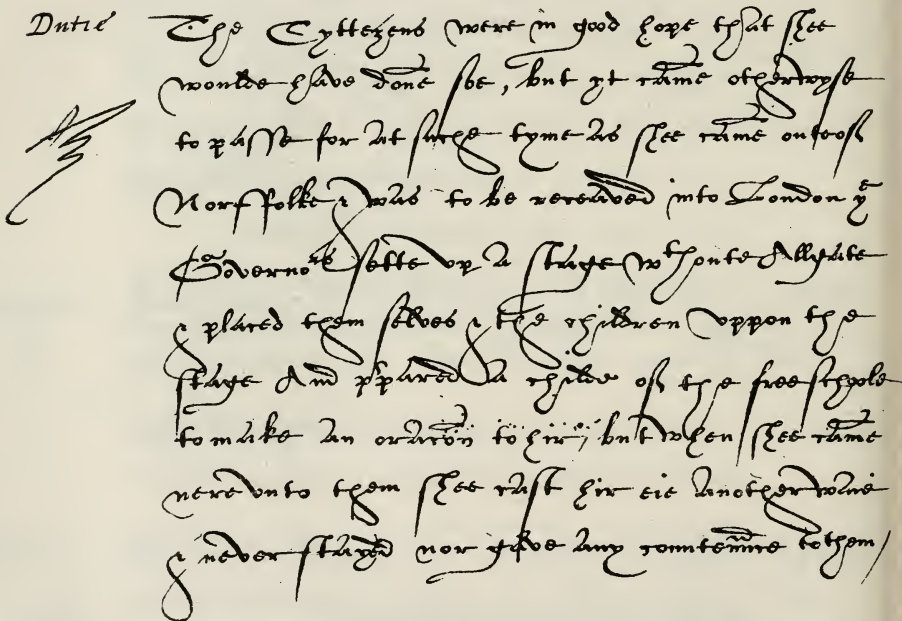 Dutie
The Cyttezens were in good hope that shee
woulde have done soe, but yt came otherwyse
to passe for at suche tyme as shee came out of
Norffolke & was to be receaved into London ye
Governors sette up a stage wthoute Allgate
& placed them selves & the children uppon the
stage And p'pared a childe of the free schoole
to make an oracon to hir, but when shee came
nere unto them shee cast hir eie another waie
& never stayed nor gave any countennce to them /